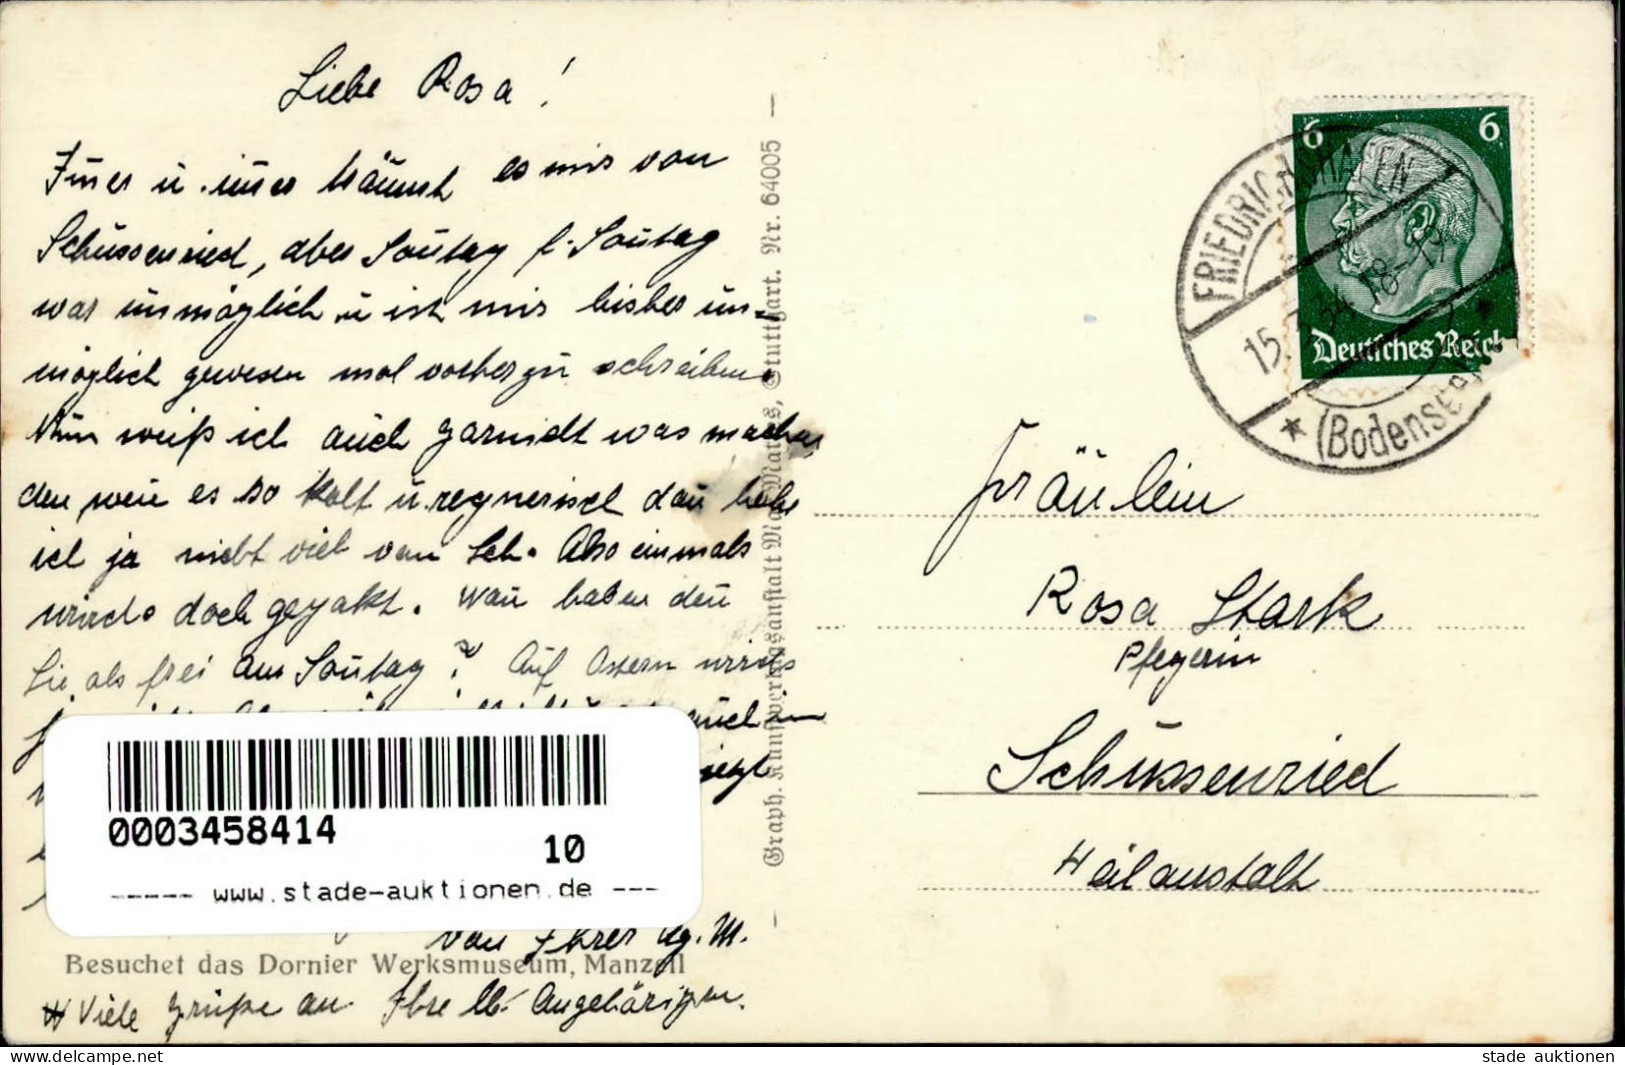 Liebe Rosa!
Immer u. immer träumt es mir von
Schussenried, aber Sonntag f. Sonntag
war unmöglich u. ist mir bisher un-
möglich gewesen mal vorher zu schreiben.
Nun weiß ich auch garnicht was machen,
denn wenn es so kalt u. regnerisch dann habe
ich ja nicht viel von Sch. Also einmals
wirds doch gepakt. Wann haben denn
Sie als frei am Sonntag? Auf Ostern wirds
jetzt
von Ihrer
Besuchet das Dornier Werksmuseum, Manzell
Viele Grüße an Ihre lb. Angehörigen.
Graph. Kunstwerksanstalt Max Matt's, Stuttgart. Nr. 64005
6 6
Deutsches Reich
FRIEDRICHSHAFEN
15. 34. 18-19
* (Bodensee)
Fräulein
Rosa Stark
Pflegerin
Schussenried
Heilanstalt
0003458414
10
----- www.stade-auktionen.de ---
www.delcampe.net
stade auktionen